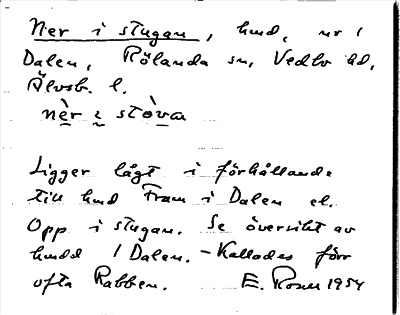 Ner i stugan, hmd. nr 1
Dalen, Rölanda sn, Vedbo hd,
Älvsb. l.
nèr i stòva
Ligger lågt i förhållande
till hmd Fram i Dalen el.
Opp i stugan. Se översikt av
hmdd / Dalen. - Kallades förr
ofta Rabben. E. Rosen 1954